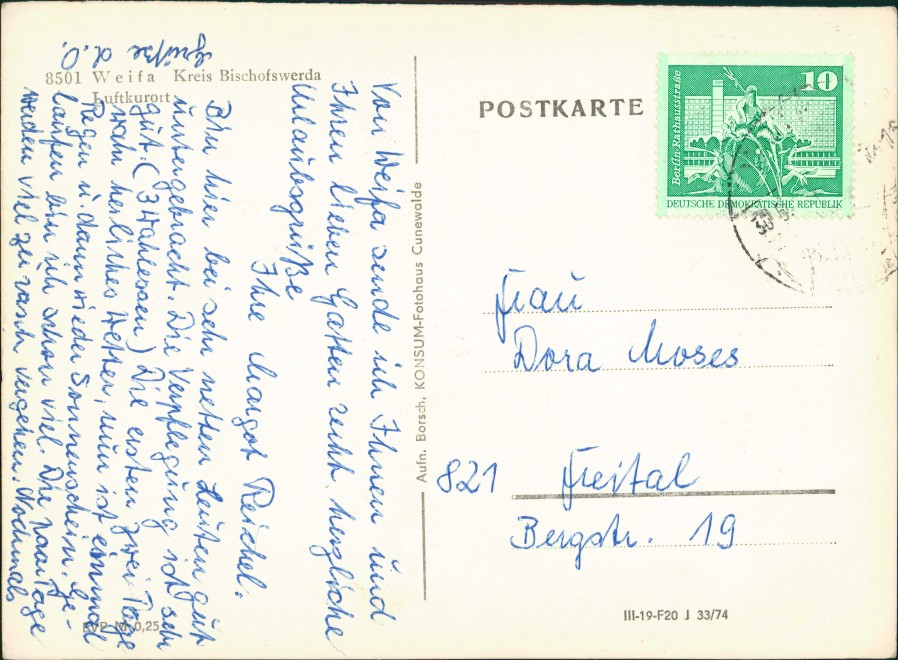 8501 Weifa Kreis Bischofswerda
Luftkurort
Von Weifa sende ich Ihnen und
Ihren lieben Gatten recht herzliche
Urlaubsgrüße
Ihre Margot Reichel.
Bin hier bei sehr netten Leuten gut
untergebracht. Die Verpflegung ist sehr
gut. (3 Wahlessen) Die ersten zwei Tage
war herliches Wetter, nun ist einmal
Regen u. dann wieder Sonnenschein. Ge-
laufen bin ich schon viel. Die paar Tage
werden viel zu rasch vergehen. Nochmals
Grüße d. O.
EVP M 0,25
Aufn. Borsch, KONSUM-Fotohaus Cunewalde
POSTKARTE
10
Berlin-Rathausstraße
DEUTSCHE DEMOKRATISCHE REPUBLIK
Frau
Dora Moses
821 Freital
Bergstr. 19
III-19-F20 J 33/74